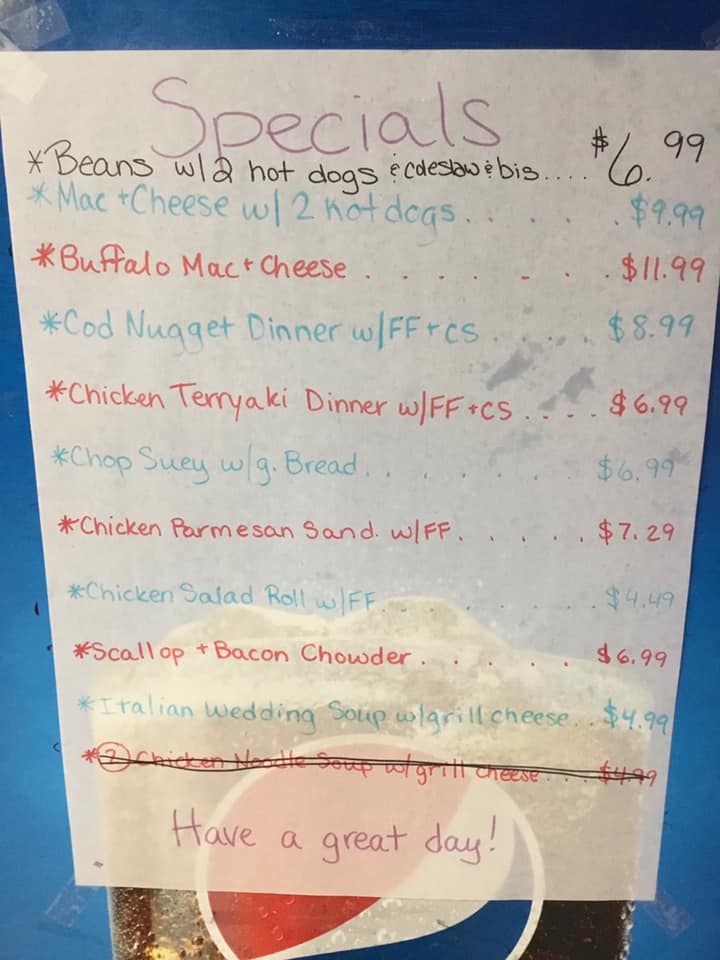 Specials
*Beans w/2 hot dogs & coleslaw & bis.... $6.99
*Mac + Cheese w/ 2 hot dogs. . . . . $9.99
*Buffalo Mac + Cheese . . . . - . . $11.99
*Cod Nugget Dinner w/FF + CS . . . . . $8.99
*Chicken Terryaki Dinner w/FF + CS . . . . $6.99
*Chop Suey w/g. Bread. . . . . . . $6.99
*Chicken Parmesan Sand. w/FF. . . . . $7.29
*Chicken Salad Roll w/FF. . . . . . . $4.49
*Scallop + Bacon Chowder . . . . . $6.99
*Italian Wedding Soup w/grill cheese... $4.99
*② Chicken Noodle Soup w/grill cheese . . . $4.99
Have a great day!